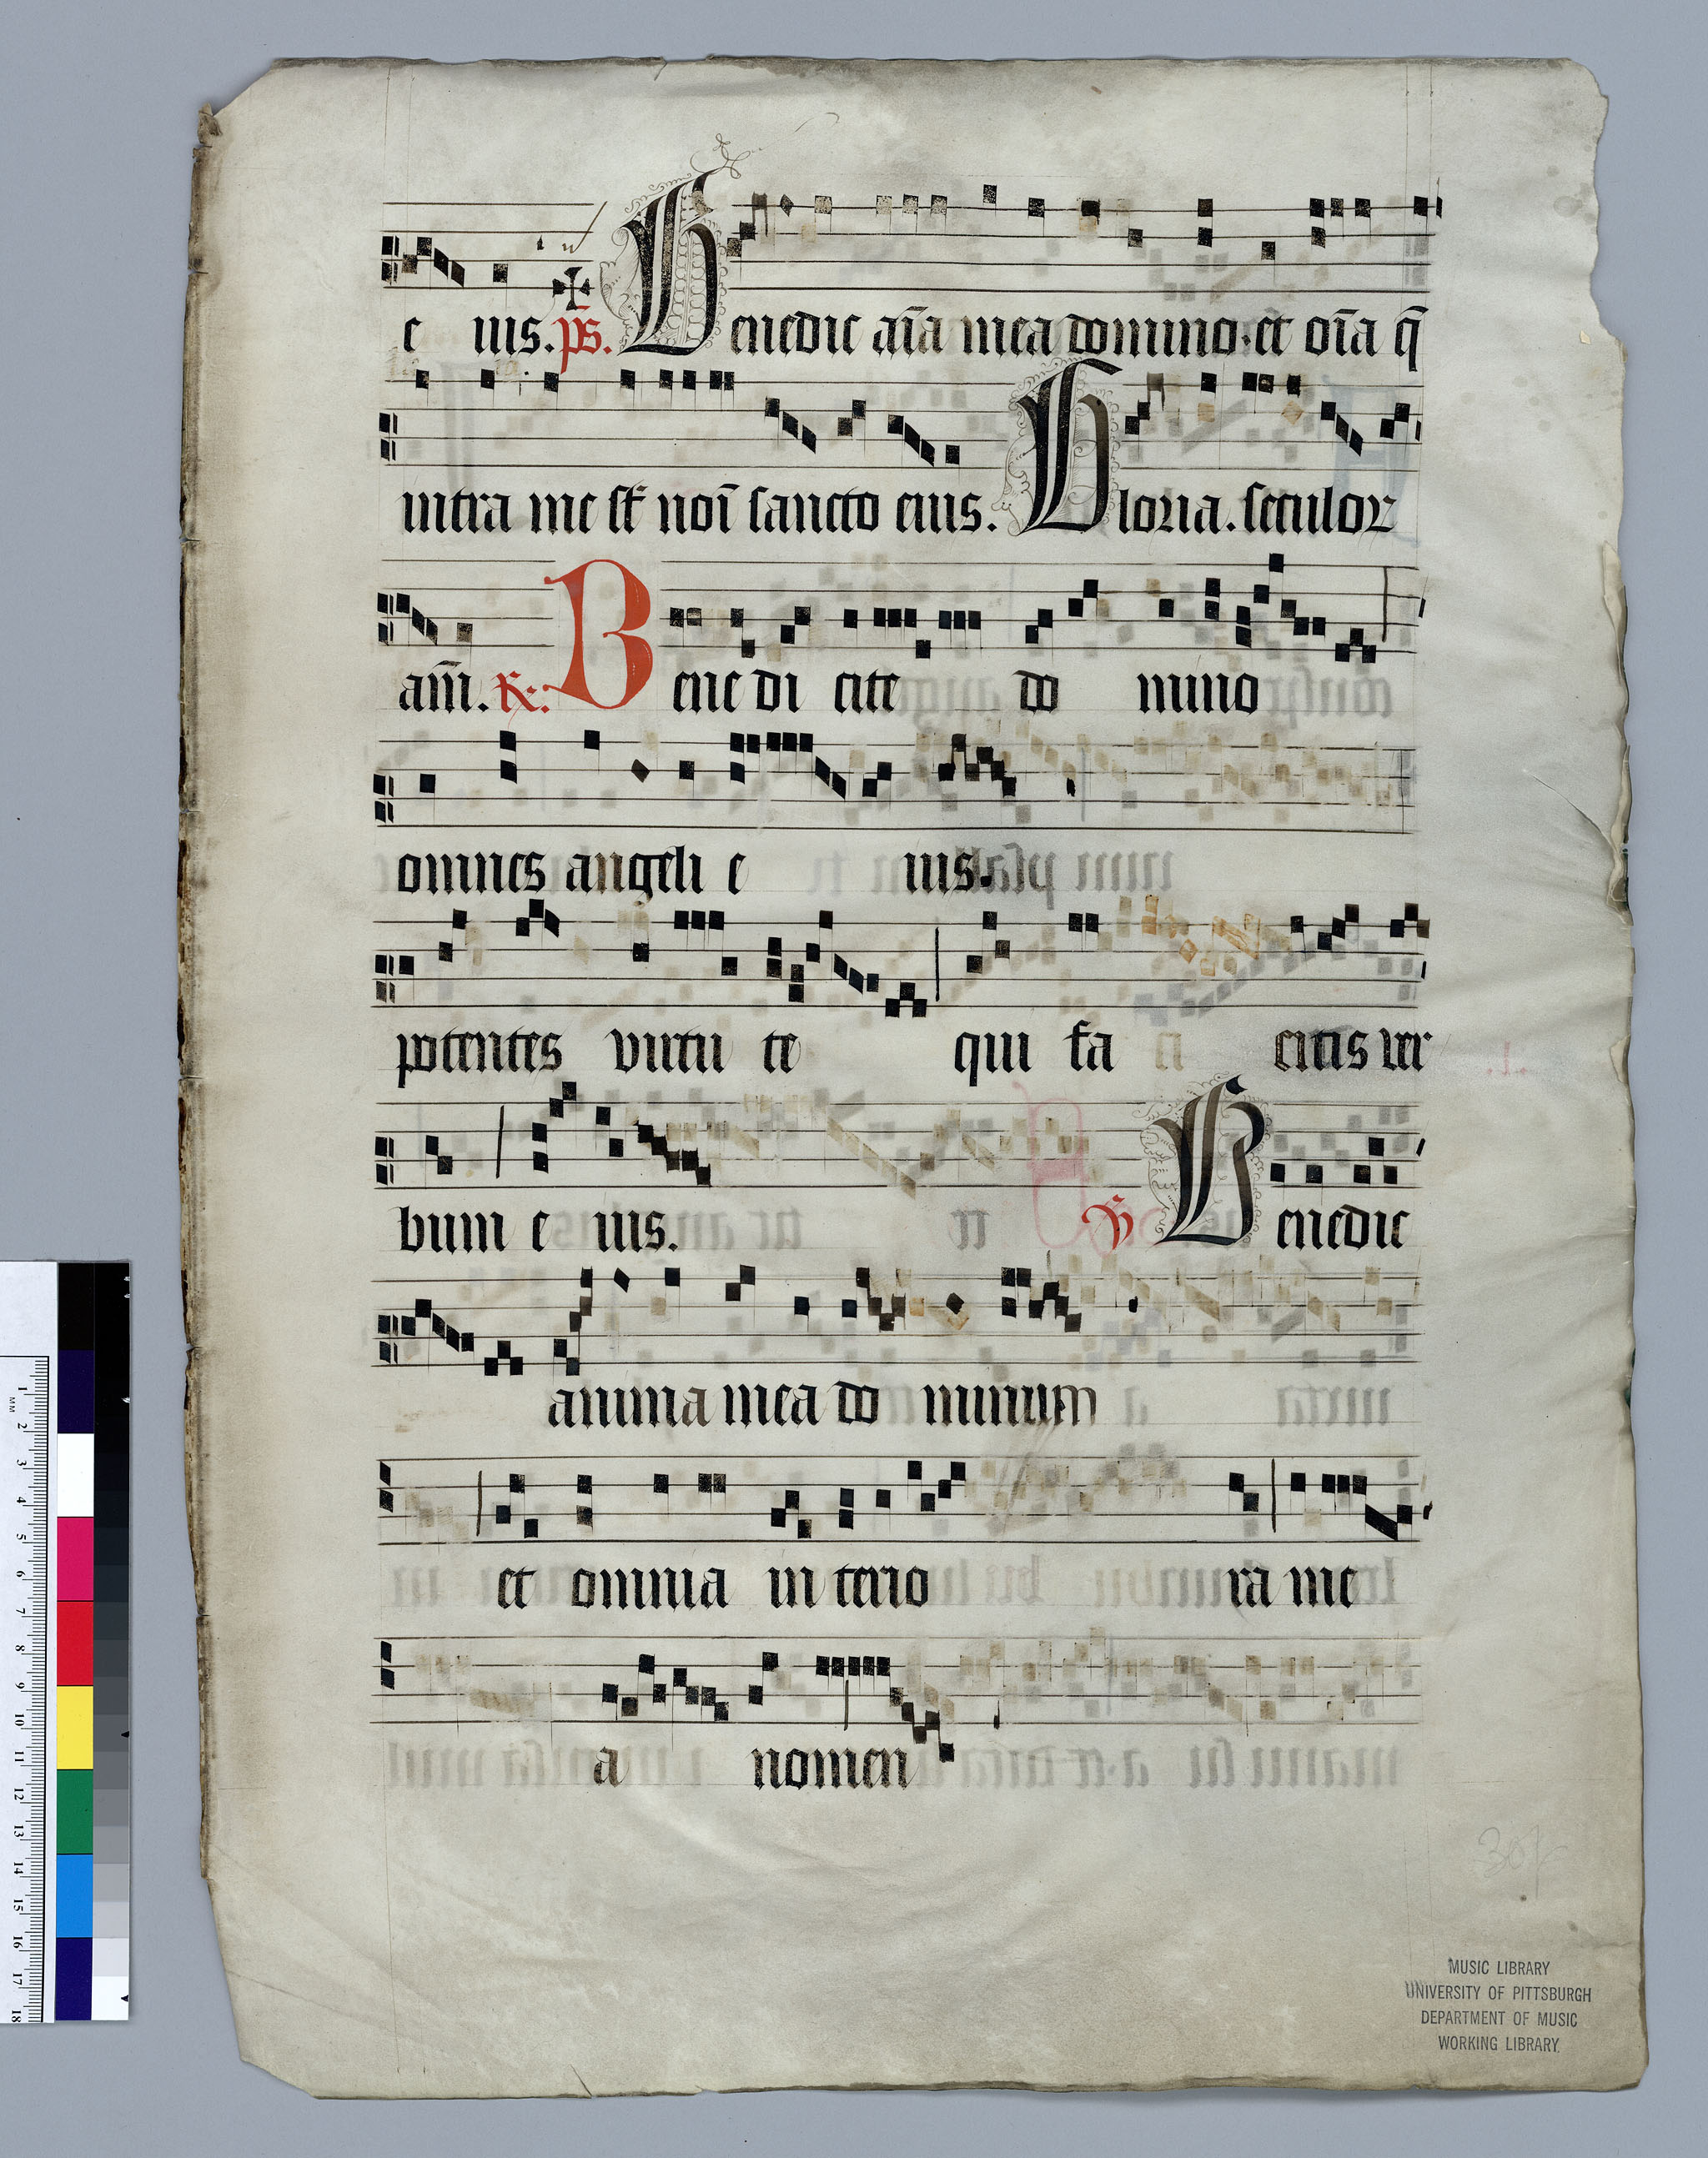 e ius. ps. Benedic aīa mea domino. et oīa q̄
intra me st̄ noī sancto eius. Gloria. seculor
am̄. R. Bene di cite do mino
omnes angeli e ius.
potentes virtu te qui fa ci entis ver
bum e ius. V Benedic
anima mea do minum
et omnia in terio ra me
a nomen
307
MUSIC LIBRARY
UNIVERSITY OF PITTSBURGH
DEPARTMENT OF MUSIC
WORKING LIBRARY
MM
1
2
3
4
5
6
7
8
9
10
11
12
13
14
15
16
17
18